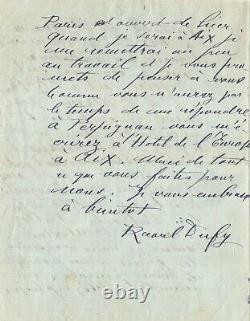 Paris et ouvert de hier
quand je serai à Aix je
me remettrai un peu
au travail et je vous pro
mets de penser à vous
comme vous n'aurez pas
le temps de me répondre
à Perpignan vous m'é
crirez à Hotel de l'Europe
à Aix. Merci de tout
ce que vous faites pour
nous. Je vous embrasse
à bientot
Raoul Dufy